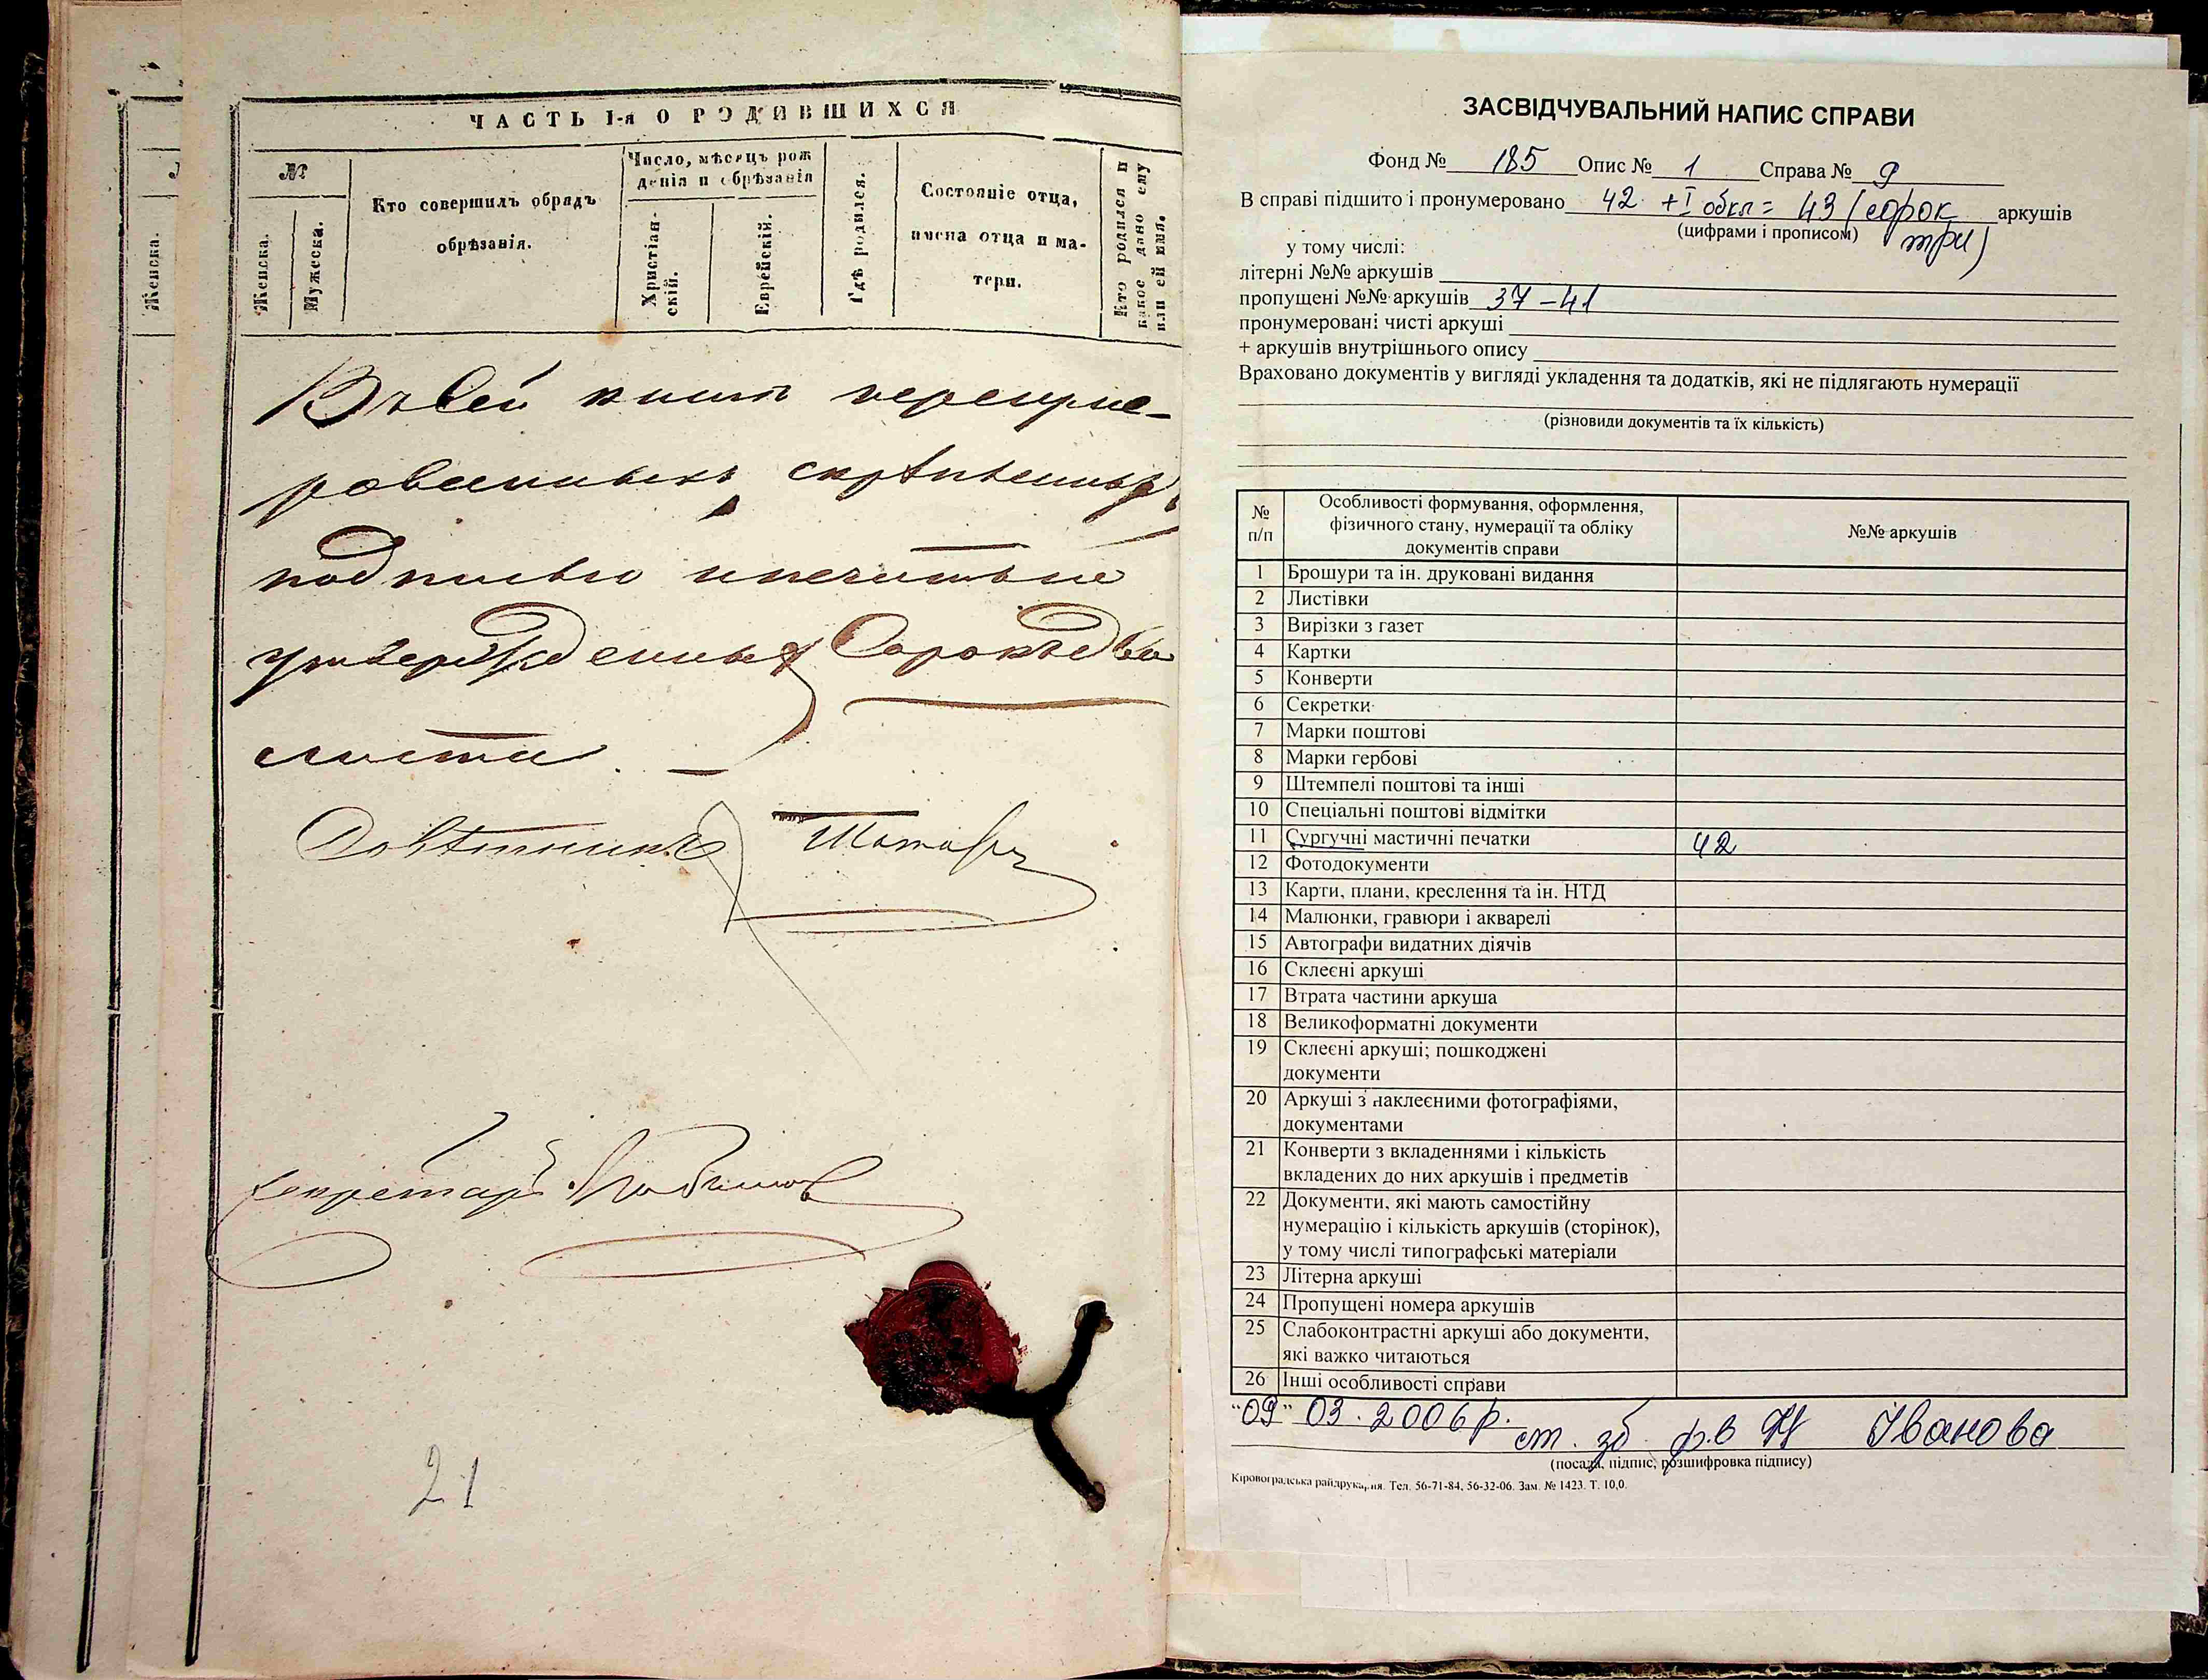 ЧАСТЬ I-я О РОДИВШИХСЯ
№
Женска.
Мужеска.
Кто совершилъ обрядъ
обрѣзанія.
Число, мѣсяцъ рож
денія и обрѣзанія
Христіан-
скій.
Еврейскій.
Гдѣ родился.
Состояніе отца,
имена отца и ма-
тери.
Кто родился и
какое дано ему
или ей имя.
Женска.
Въ сей книгѣ перенуме-
рованныхъ скрѣпленныхъ
подписью и печатью
утвержденныхъ Сорокъ два
листа.
Совѣтникъ
Секретарь
21
ЗАСВІДЧУВАЛЬНИЙ НАПИС СПРАВИ
Фонд № 185 Опис № 1 Справа № 9
В справі підшито і пронумеровано 42 + I обкл = 43 (сорок аркушів
(цифрами і прописом) три)
у тому числі:
літерні №№ аркушів
пропущені №№ аркушів 37-41
пронумеровані чисті аркуші
+ аркушів внутрішнього опису
Враховано документів у вигляді укладення та додатків, які не підлягають нумерації
(різновиди документів та їх кількість)
№ п/п
Особливості формування, оформлення,
фізичного стану, нумерації та обліку
документів справи
№№ аркушів
1 Брошури та ін. друковані видання
2 Листівки
3 Вирізки з газет
4 Картки
5 Конверти
6 Секретки
7 Марки поштові
8 Марки гербові
9 Штемпелі поштові та інші
10 Спеціальні поштові відмітки
11 Сургучні мастичні печатки 42
12 Фотодокументи
13 Карти, плани, креслення та ін. НТД
14 Малюнки, гравюри і акварелі
15 Автографи видатних діячів
16 Склеєні аркуші
17 Втрата частини аркуша
18 Великоформатні документи
19 Склеєні аркуші; пошкоджені
документи
20 Аркуші з наклеєними фотографіями,
документами
21 Конверти з вкладеннями і кількість
вкладених до них аркушів і предметів
22 Документи, які мають самостійну
нумерацію і кількість аркушів (сторінок),
у тому числі типографські матеріали
23 Літерна аркуші
24 Пропущені номера аркушів
25 Слабоконтрастні аркуші або документи,
які важко читаються
26 Інші особливості справи
"09" 03. 2006р.
ст. зб Іванова
(посада, підпис, розшифровка підпису)
Кіровоградська райдрукарня. Тел. 56-71-84, 56-32-06. Зам. № 1423. Т. 10,0.